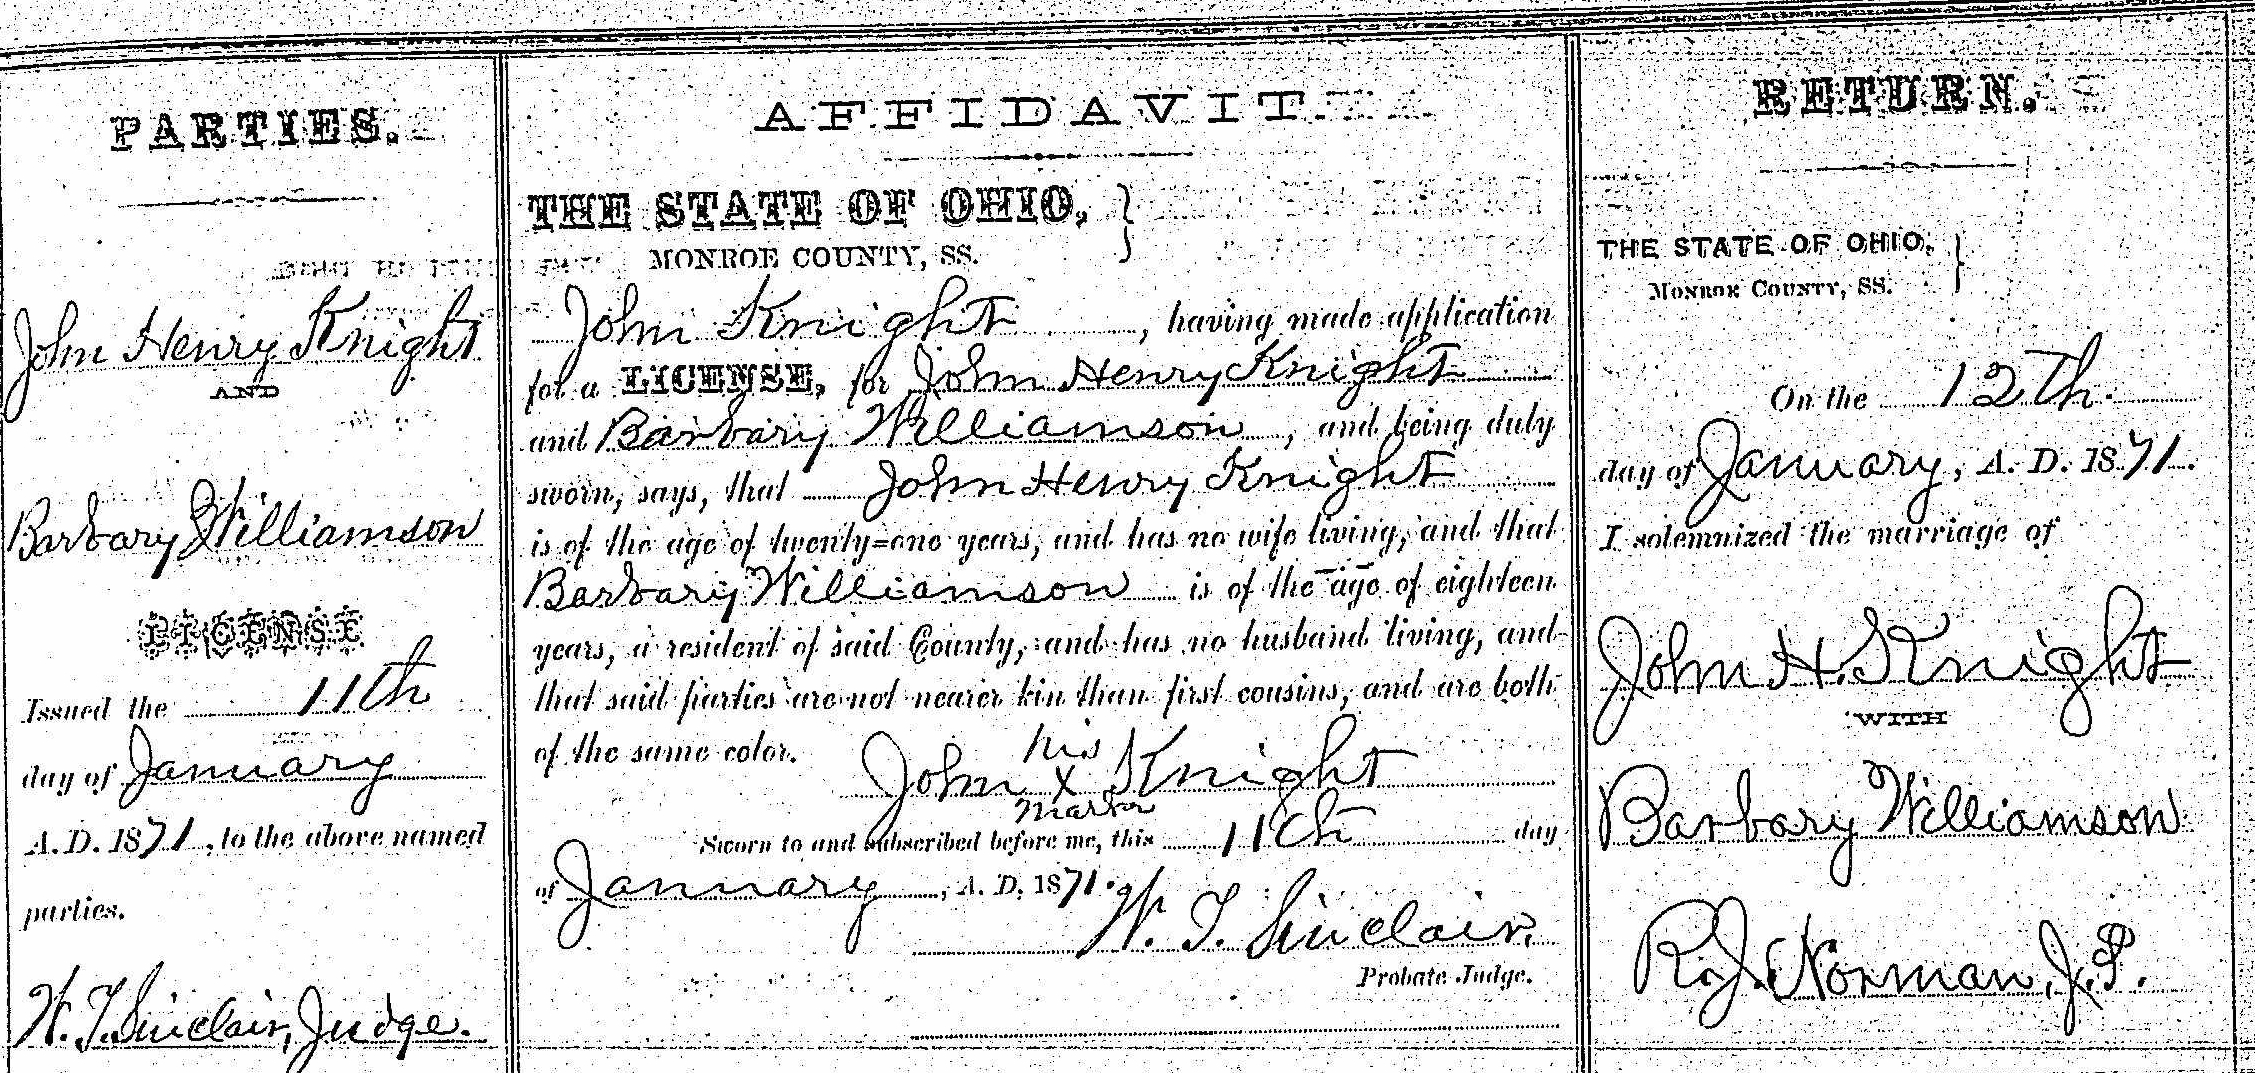 PARTIES.
John Henry Knight
AND
Barbary Williamson
LICENSE
Issued the 11th
day of January
A. D. 1871, to the above named
parties.
W. T. Sinclair, Judge.
AFFIDAVIT
THE STATE OF OHIO, }
MONROE COUNTY, SS.
John Knight, having made application
for a LICENSE, for John Henry Knight
and Barbary Williamson, and being duly
sworn, says, that John Henry Knight
is of the age of twenty=one years, and has no wife living, and that
Barbary Williamson is of the age of eighteen
years, a resident of said County, and has no husband living, and
that said parties are not nearer kin than first cousins, and are both
of the same color.
his
John X Knight
mark
Sworn to and subscribed before me, this 11th day
of January, A. D. 1871.
W. T. Sinclair,
Probate Judge.
RETURN.
THE STATE OF OHIO, }
MONROE COUNTY, SS.
On the 12th.
day of January, A. D. 1871.
I solemnized the marriage of
John H. Knight
WITH
Barbary Williamson
R. J. Norman, J. P.